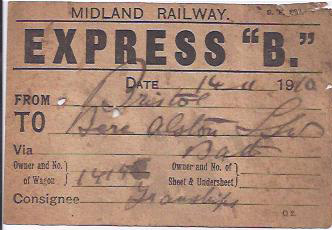 MIDLAND RAILWAY.
EXPRESS "B."
DATE 14 11 1910
FROM Bristol
TO Bere Alston LSW
Via Bath
Owner and No. of Wagon } 141 Owner and No. of Sheet & Undersheet }
Consignee Tranships